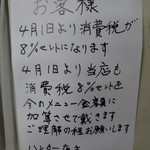 お客様
4月1日より消費税が
8%セントになります
4月1日より当店も
消費税8%セントを
今のメニュー金額に
加算させて戴きます
ご理解の程お願いします